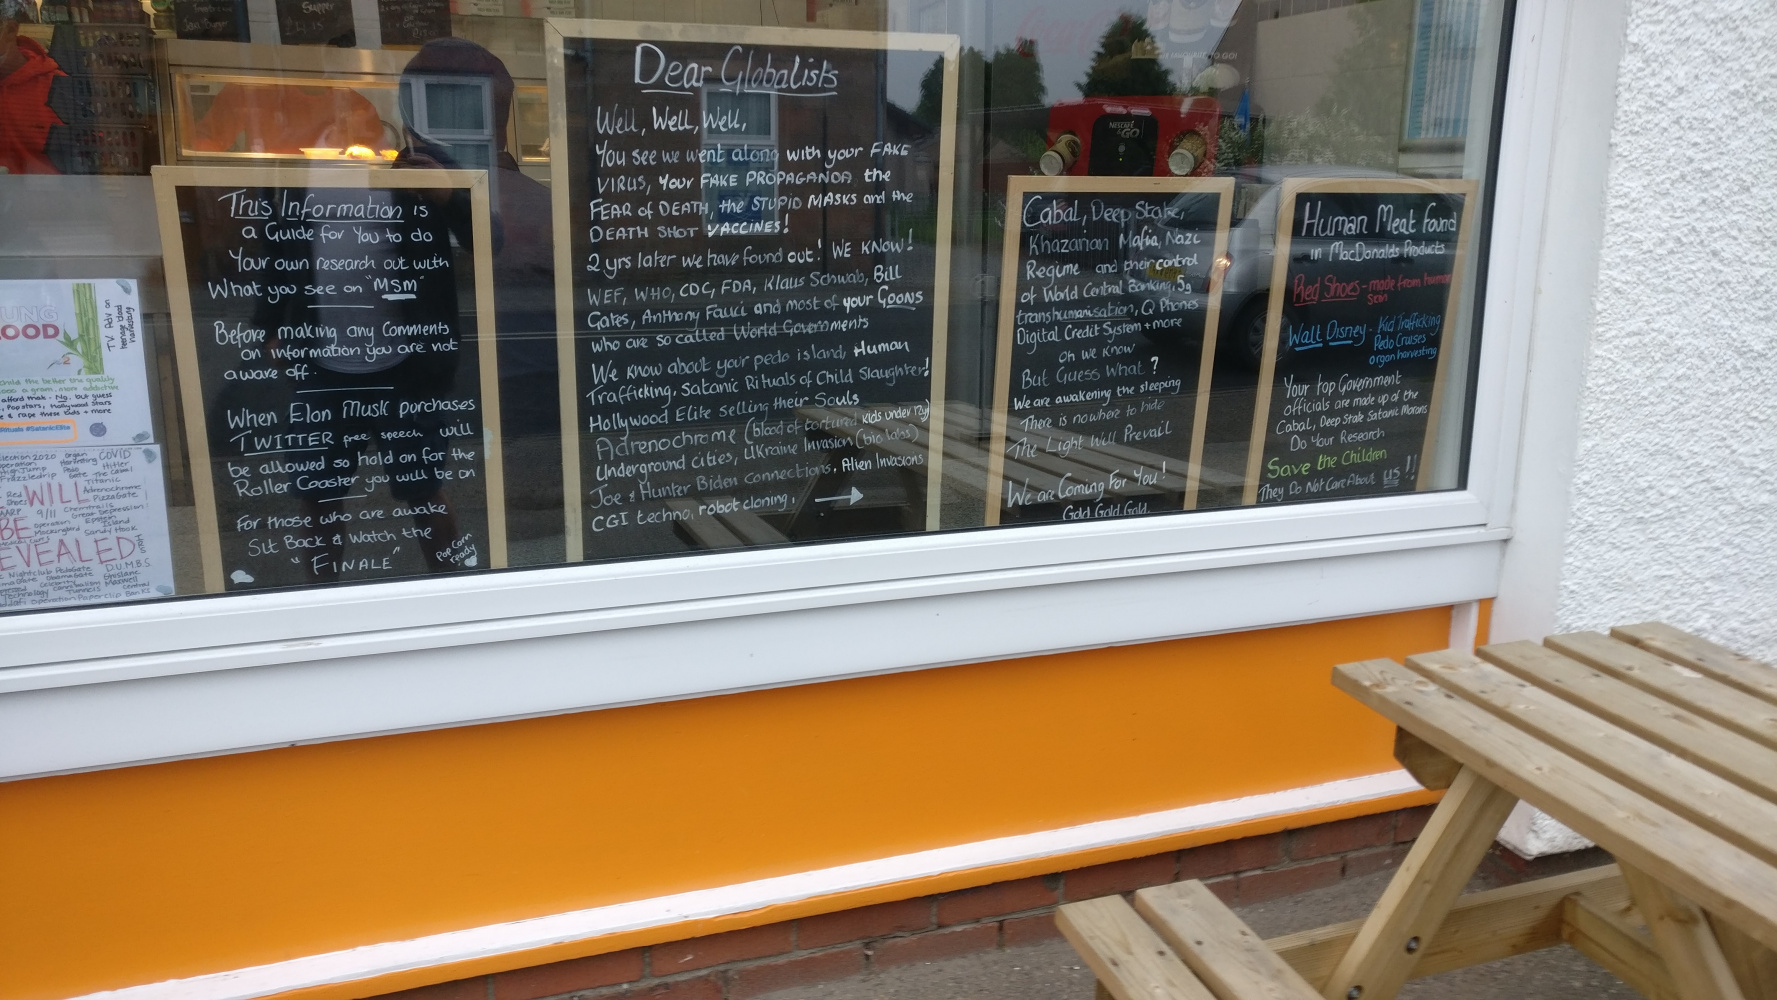 This Information is
a Guide for You to do
Your own research out with
What you see on "MSM"
Before making any Comments
on information you are not
aware off.
When Elon Musk purchases
TWITTER free speech will
be allowed so hold on for the
Roller Coaster you will be on
For those who are awake
Sit Back & Watch the
"FINALE"
Pop Corn
ready
Dear Globalists
Well, Well, Well,
You see we went along with your FAKE
VIRUS, Your FAKE PROPAGANDA the
FEAR of DEATH, the STUPID MASKS and the
DEATH SHOT VACCINES!
2 yrs later we have found out! WE KNOW!
WEF, WHO, CDC, FDA, Klaus Schwab, Bill
Gates, Anthony Fauci and most of your Goons
who are so called World Governments
We know about your pedo island, Human
Trafficking, Satanic Rituals of Child Slaughter!
Hollywood Elite selling their Souls
Adrenochrome (blood of tortured kids under 12y)
Underground cities, Ukraine Invasion (bio labs)
Joe & Hunter Biden connections, Alien Invasions
CGI techno, robot cloning,
Cabal, Deep State,
Khazarian Mafia, Nazi
Regime and their control
of World Central Banking, 5g
transhumanisation, Q Phones
Digital Credit System + more
oh we know
But Guess What?
We are awakening the sleeping
There is nowhere to hide
The Light Will Prevail
We are Coming For You!
Gold Gold Gold.
Human Meat Found
in MacDonalds Products
Red Shoes - made from human
Skin
Walt Disney - Kid Trafficking
Pedo Cruises
organ harvesting
Your top Government
officials are made up of the
Cabal, Deep State Satanic Morons
Do Your Research
Save the Children
They Do Not Care About US!!
NESCAFÉ
&GO
Supper
TV Adv on
teenage blood
harvesting
LOOD
child the better the quality
Pop stars, Hollywood Stars
& rape these kids + more
#SatanicElite
election 2020
organ
Harvesting
COVID
Hitler
Titanic
Adrenochrome
PizzaGate
Red
Shoes
WILL
9/11
Chemtrails
BE
Epstein
Island
Mockingbird
Sandy Hook
EVEALED
Nightclub
D.U.M.B.S
Obamagate
Ghislane
Maxwell
Technology
Tunnels
Central
Operation Paperclip Banks